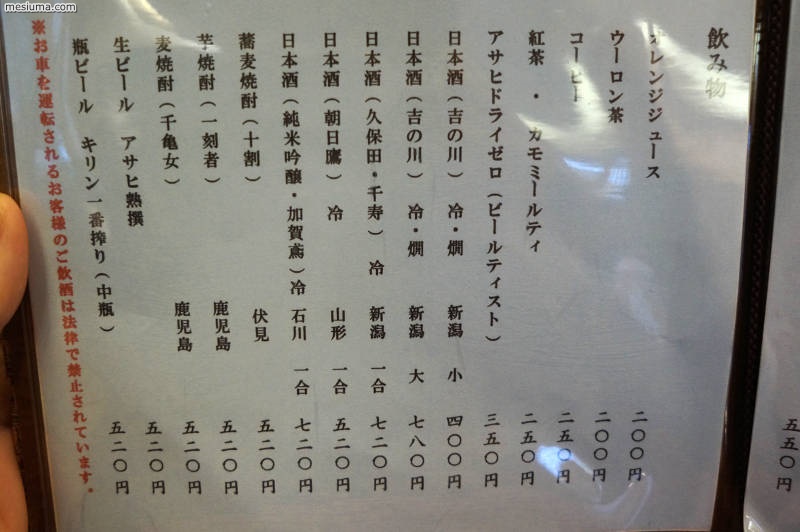 mesiuma.com
飲み物
オレンジジュース 二〇〇円
ウーロン茶 二〇〇円
コーヒー 二五〇円
紅茶 ・ カモミールティ 二五〇円
アサヒドライゼロ（ビールティスト） 三五〇円
日本酒（吉の川） 冷・燗 新潟 小 四〇〇円
日本酒（吉の川） 冷・燗 新潟 大 七八〇円
日本酒（久保田・千寿） 冷 新潟 一合 七二〇円
日本酒（朝日鷹） 冷 山形 一合 五二〇円
日本酒（純米吟醸・加賀鳶）冷 石川 一合 七二〇円
蕎麦焼酎（十割） 伏見 五二〇円
芋焼酎（一刻者） 鹿児島 五二〇円
麦焼酎（千亀女） 鹿児島 五二〇円
生ビール アサヒ熟撰 五二〇円
瓶ビール キリン一番搾り（中瓶） 五二〇円
※お車を運転されるお客様のご飲酒は法律で禁止されています。
五五〇円